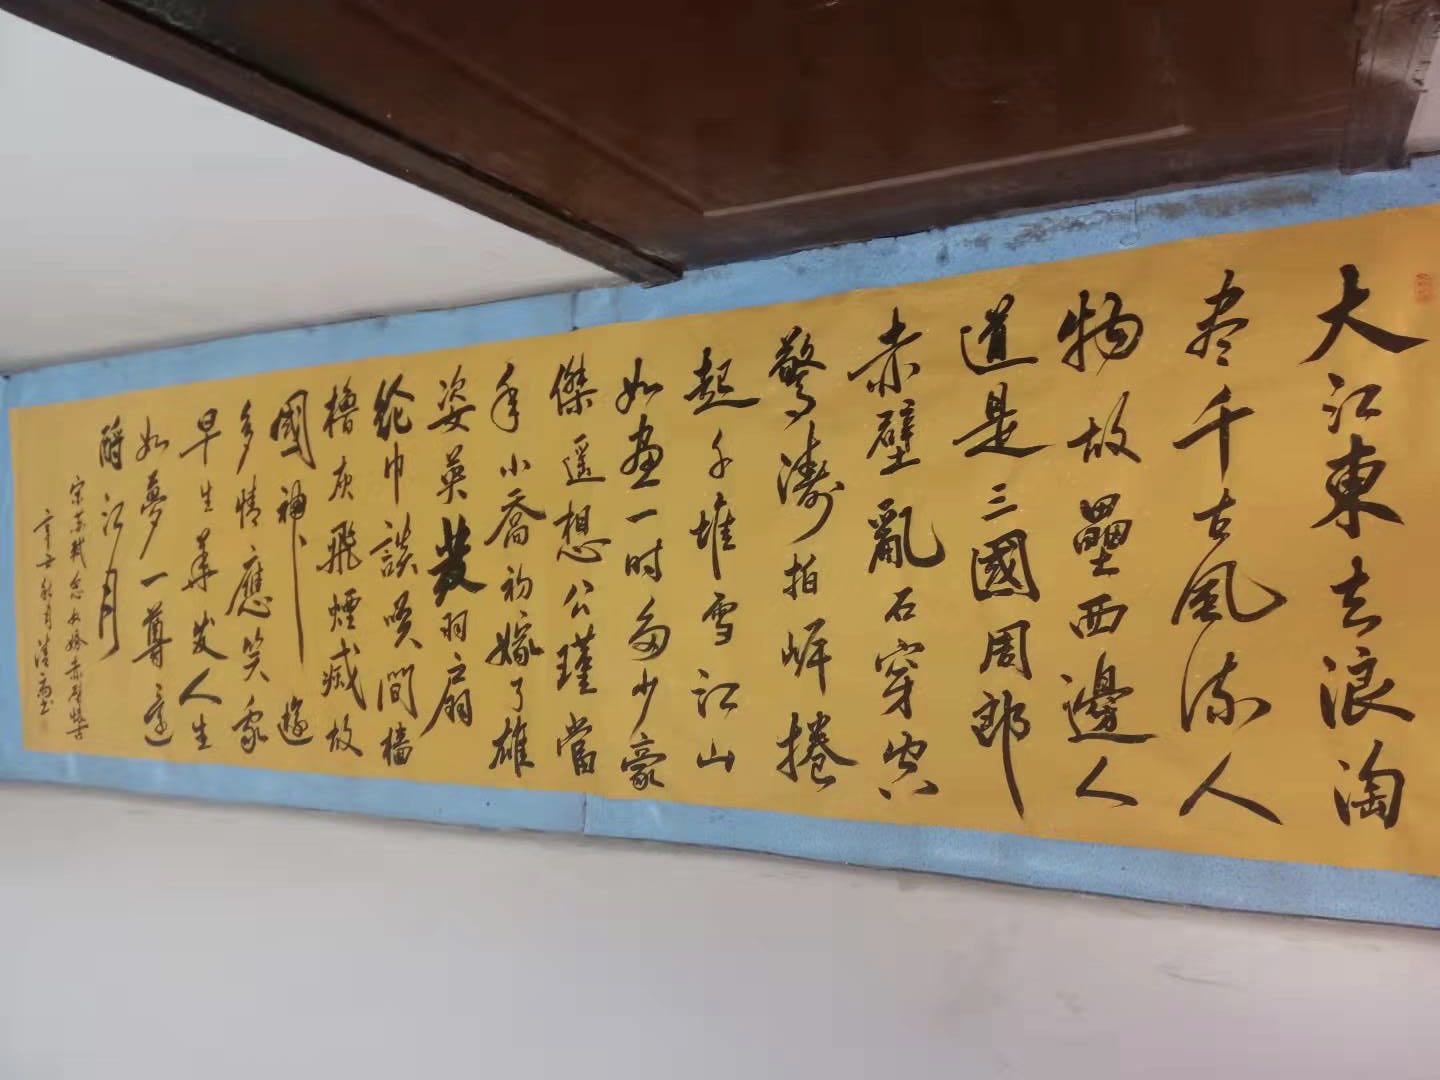 大江東去浪淘
尽千古風流人
物故壘西邊人
道是三國周郎
赤壁亂石穿空
驚濤拍岸捲
起千堆雪江山
如畫一时多少豪
傑遥想公瑾當
年小喬初嫁了雄
姿英发羽扇
纶巾談笑間檣
櫓灰飛煙滅故
國神遊
多情應笑我
早生華发人生
如夢一尊還
酹江月
宋苏軾念奴娇赤壁懷古
辛丑秋月